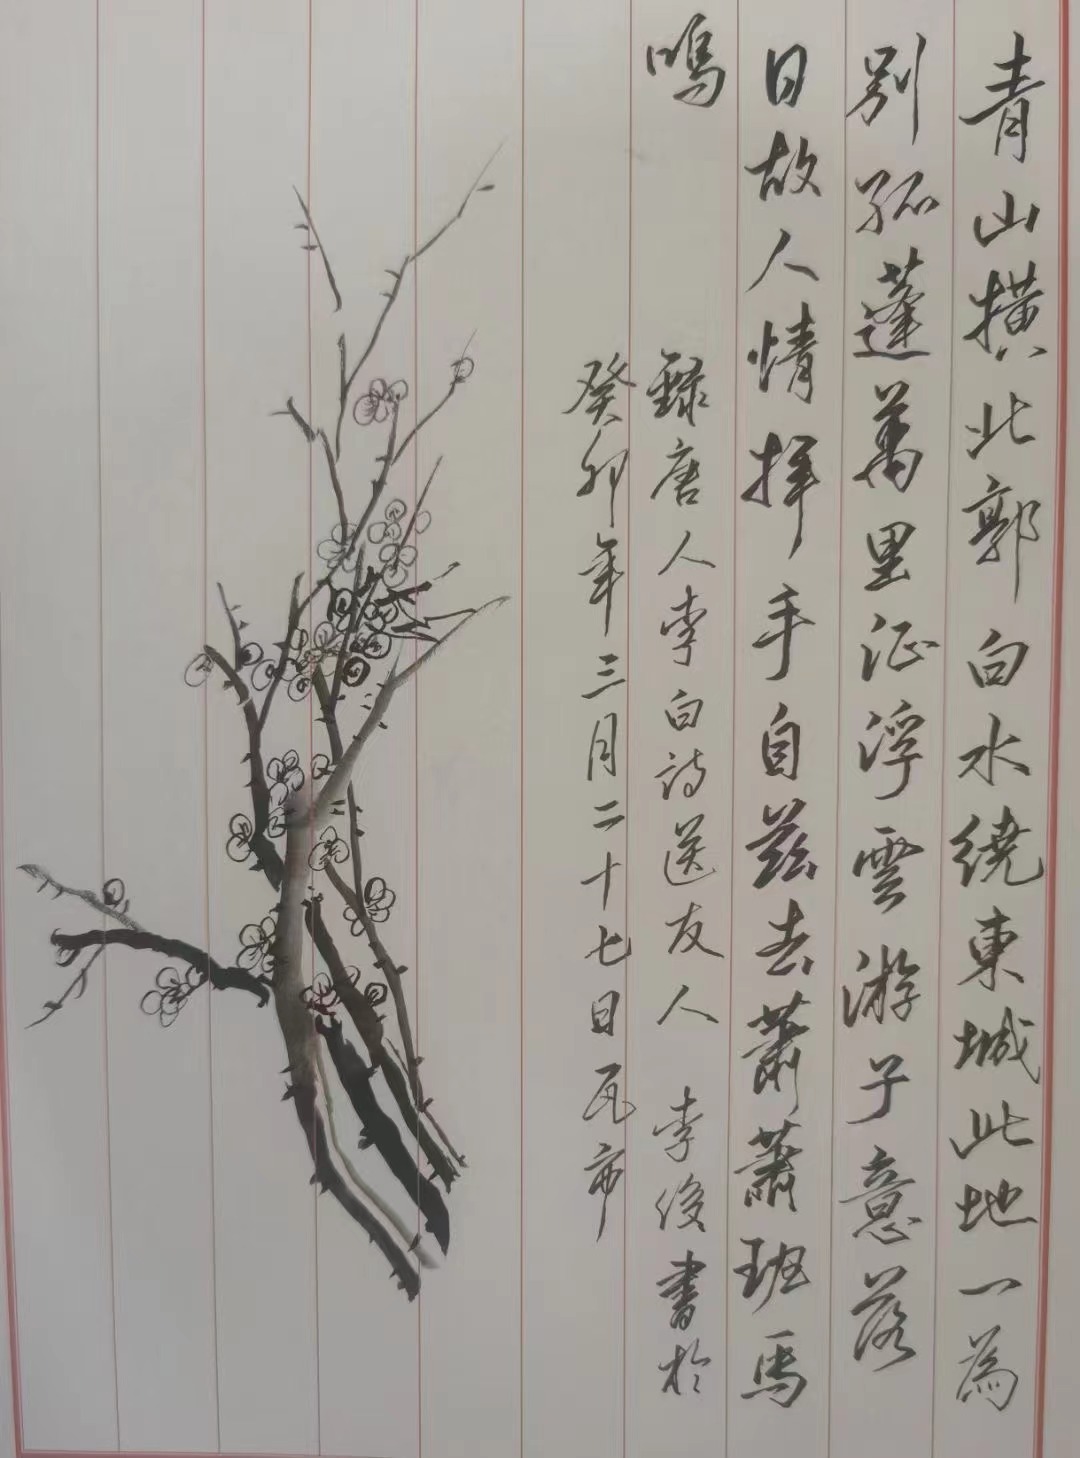 青山横北郭白水繞東城此地一為
别孤蓬萬里征浮雲游子意落
日故人情揮手自兹去蕭蕭班馬
鳴
録唐人李白詩送友人 李俊書於
癸卯年三月二十七日瓦市